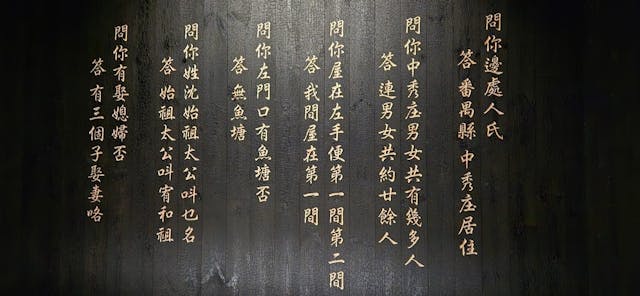 問你邊處人氏
答 番禺縣 中秀庄居住
問你中秀庄男女共有幾多人
答 連男女共約廿餘人
問你屋在左手便第一間第二間
答 我間屋在第一間
問你左門口有魚塘否
答 無魚塘
問你姓沈始祖太公呌乜名
答 始祖太公呌宥和祖
問你有娶媳婦否
答 有三個子娶妻咯